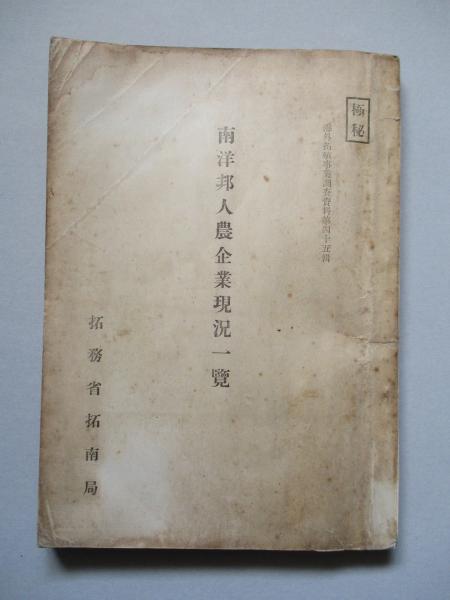 極秘
海外拓殖事業調査資料第四十五輯
南洋邦人農企業現況一覽
拓務省拓南局